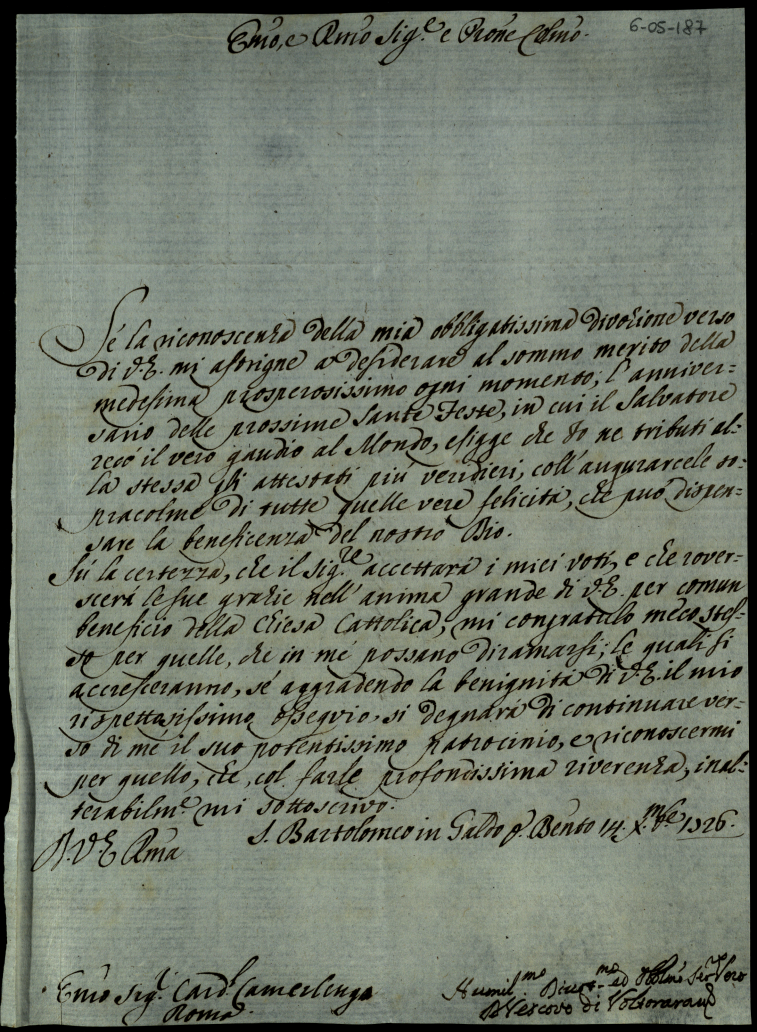 6-05-187
Emo, e Rmo Sig.e e Prone Colmo.
Se la riconoscenza della mia obbligatissima divozione verso
di V.E. mi astrigne a desiderare al sommo merito della
medesima prosperosissimo ogni momento; l'anniver=
sario delle prossime Sante Feste, in cui il Salvatore
recò il vero gaudio al Mondo, esigge che Io ne tributi al=
la stessa gli attestati più veridieri, coll'augurarcele so=
pracolme di tutte quelle vere felicità, che può dispen=
sare la beneficenza del nostro Dio.
Sù la certezza, che il Sig.re accettarà i miei voti, e che rover=
scerà le sue grazie nell'anima grande di V.E. per comun
beneficio della Chiesa Cattolica; mi congratulo meco stes=
so per quelle, che in mé possano diramarsi; le quali si
accresceranno, sé aggradendo la benignità di V.E. il mio
rispettosissimo ossequio, si degnarà di continuare ver=
so di mé il suo potentissimo patrocinio, e riconoscermi
per quello, che, col farle profondissima riverenza, inal=
terabilm.e mi sottoscrivo.
D.V.E. Rma S. Bartolomeo in Galdo p. Bento 14. Xmbre 1726.
Emo Sig.r Card.l Camerlengo
Roma
Humil.mo Divot.mo ed Obblmo Ser.re Vero
Il Vescovo di Volturara